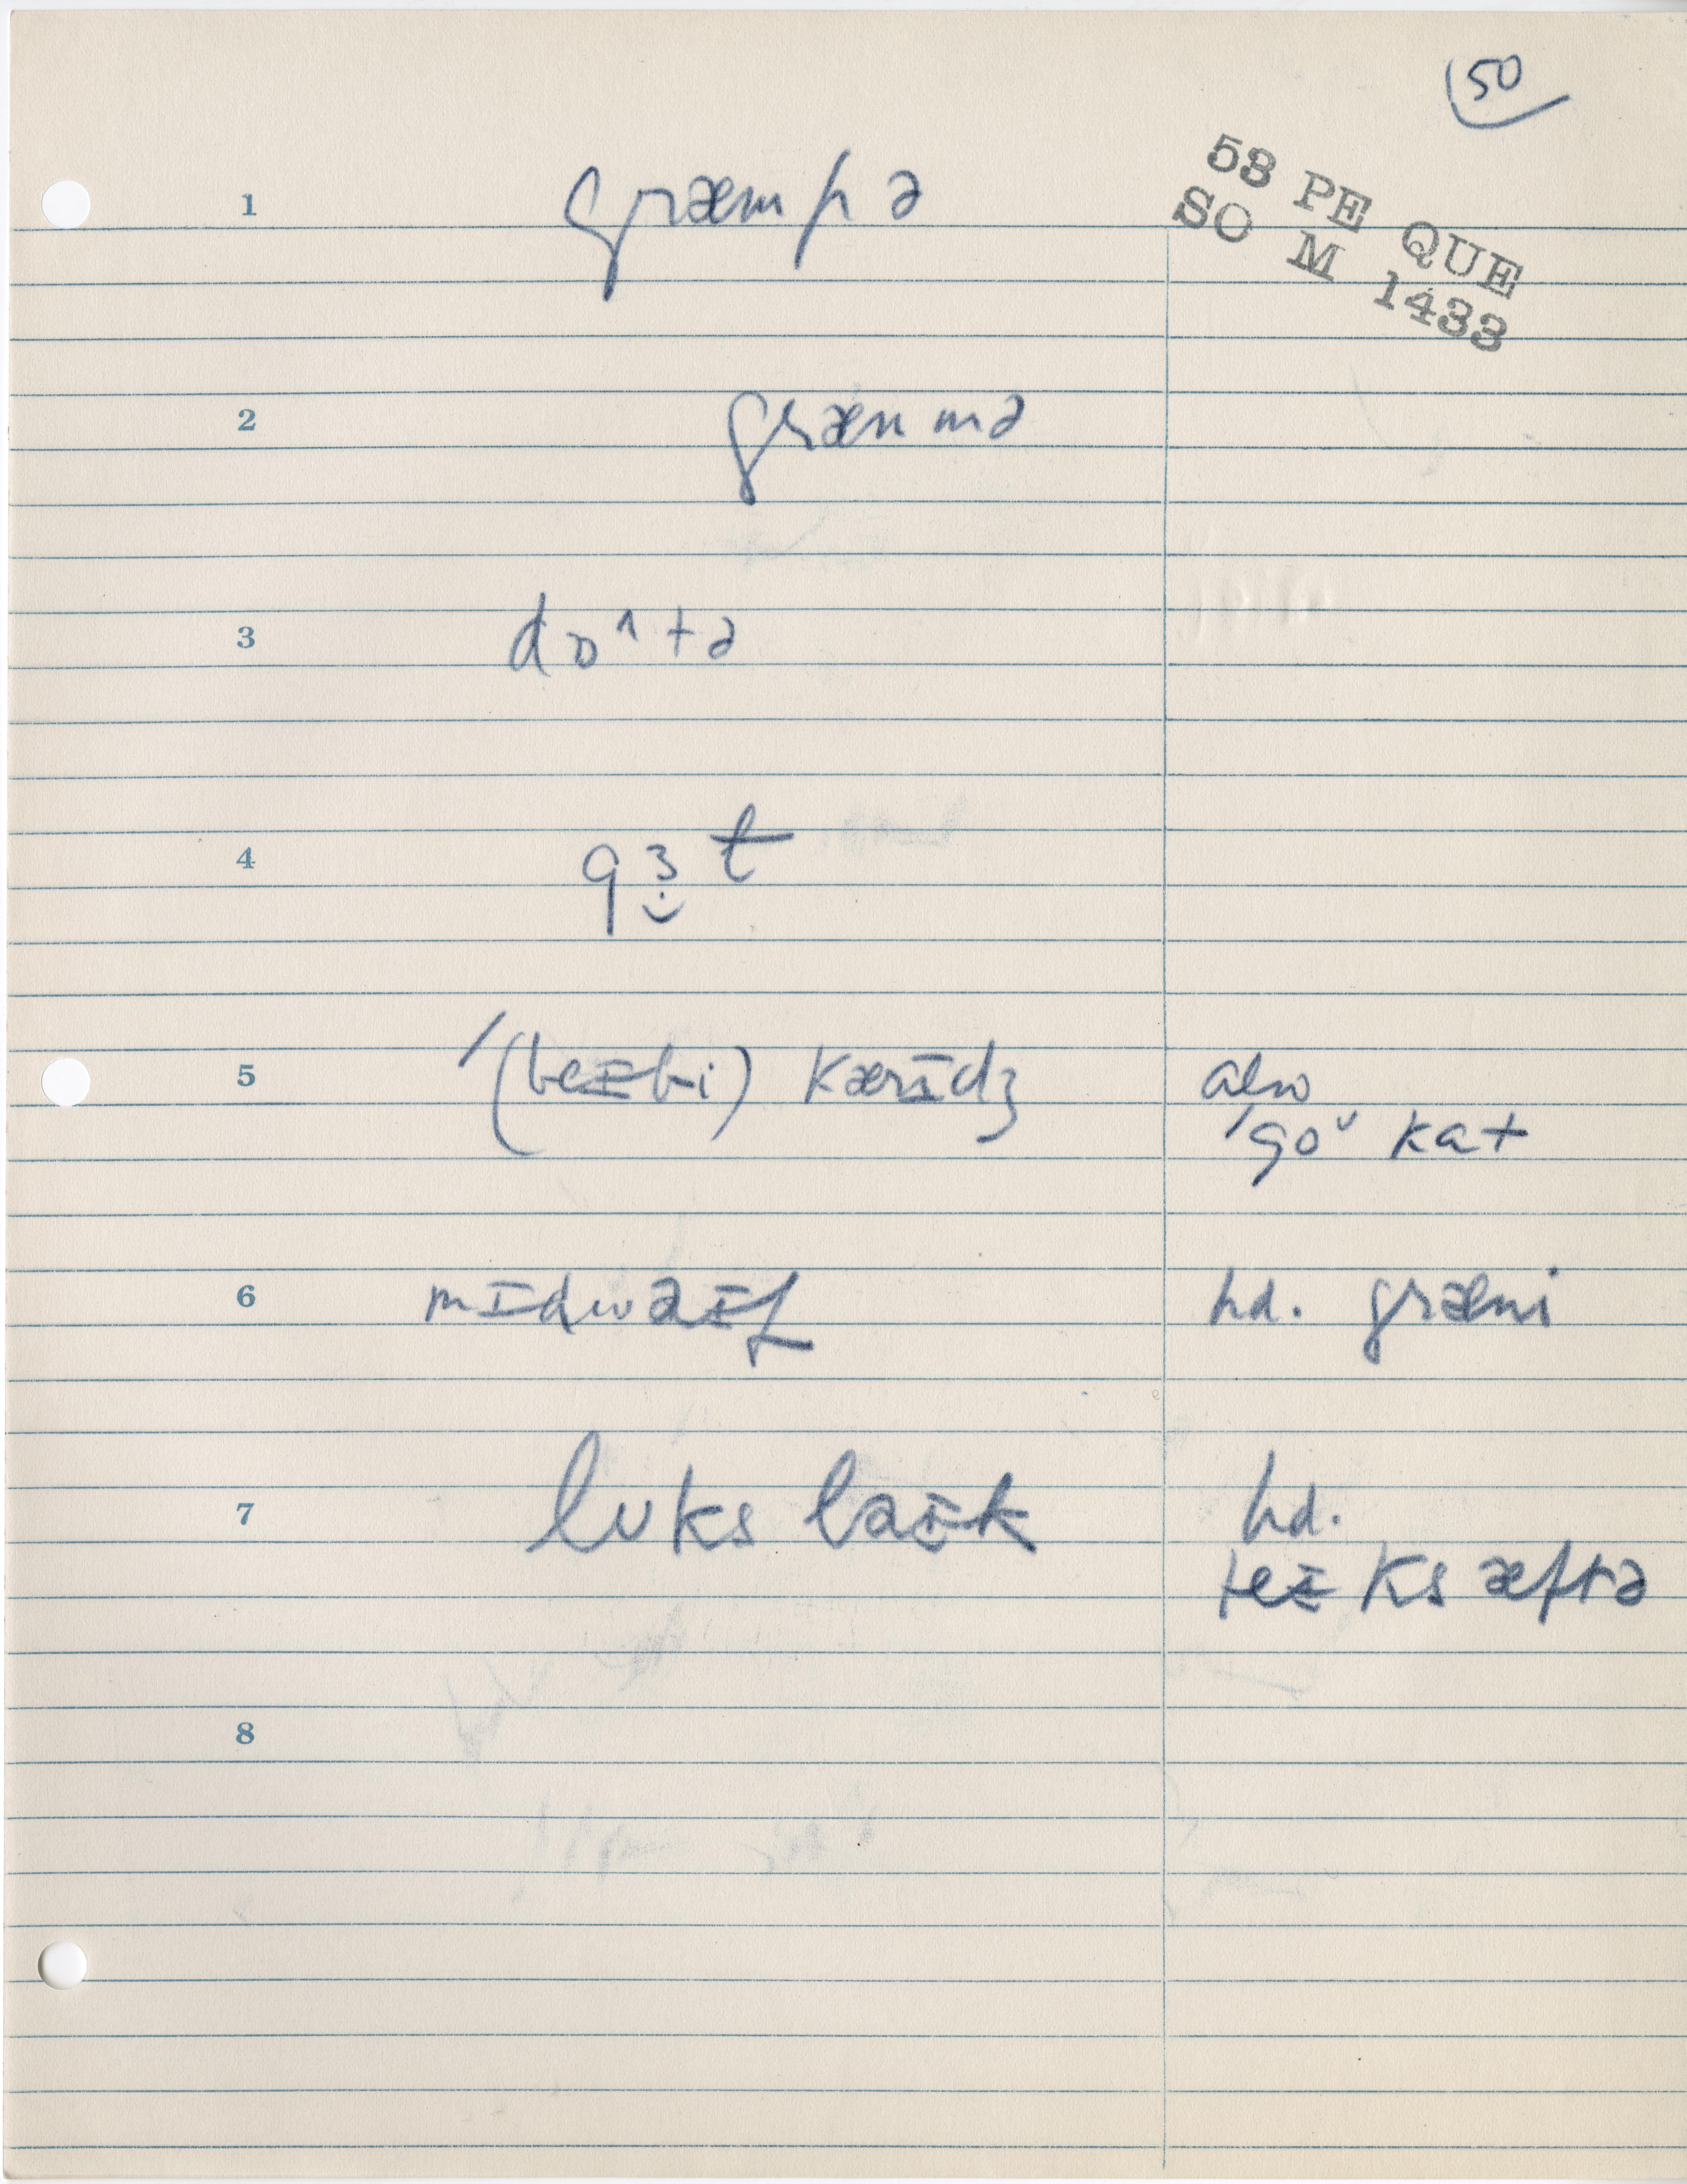 50
58 PE QUE
SO M 1433
1 græmpə
2 grænmə
3 dɒ^tə
4 gɜt
5 ′(beɪbi) kærɪdʒ also
′goᵘ kat
6 mɪdwaɪf hd. græni
7 lʊks laɪk hd.
teɪks æftə
8